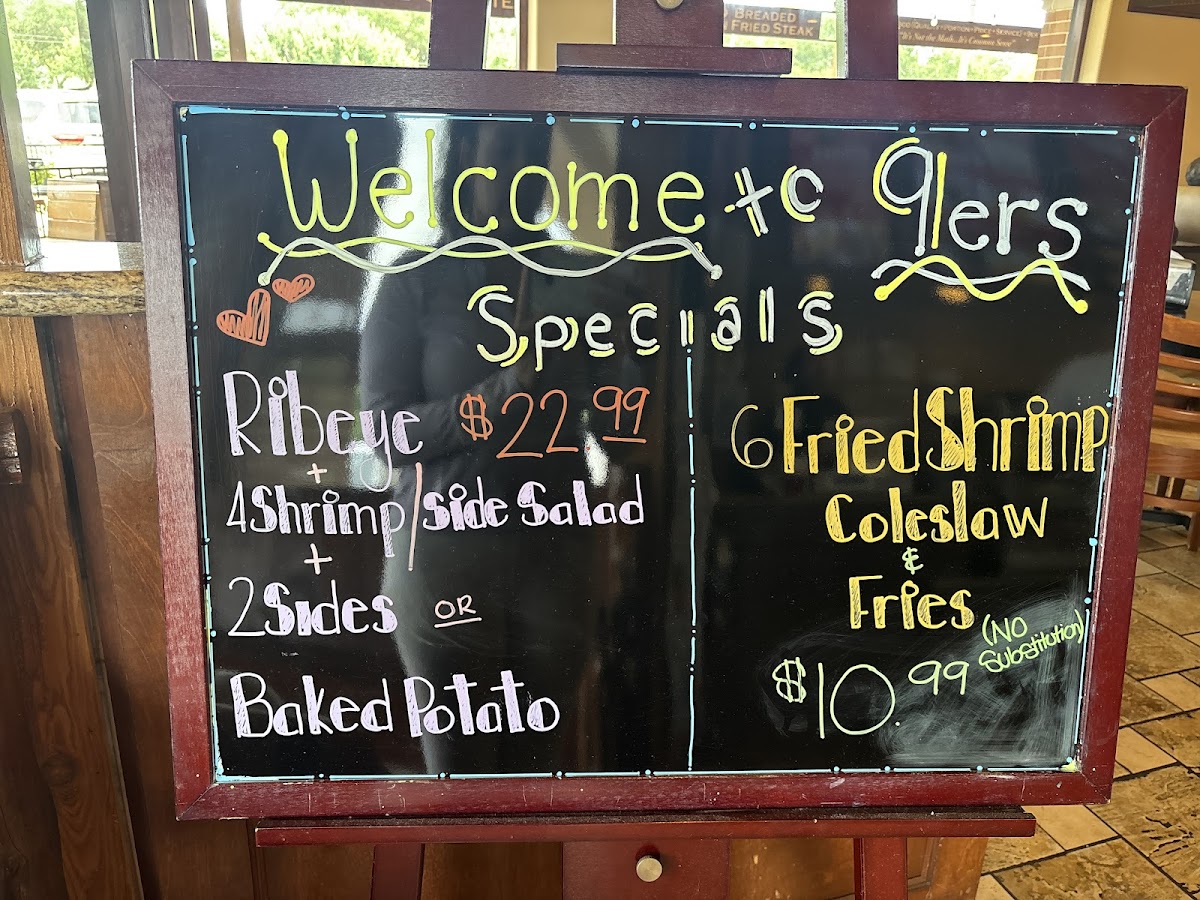 BREADED
FRIED STEAK
"It's Not the Math...It's Common Sense"
Welcome to 9lers
Specials
Ribeye $22.99
+
4 Shrimp/side Salad
+
2 Sides OR
Baked Potato
6 Fried Shrimp
Coleslaw
&
Fries
(NO
Substitution)
$10.99